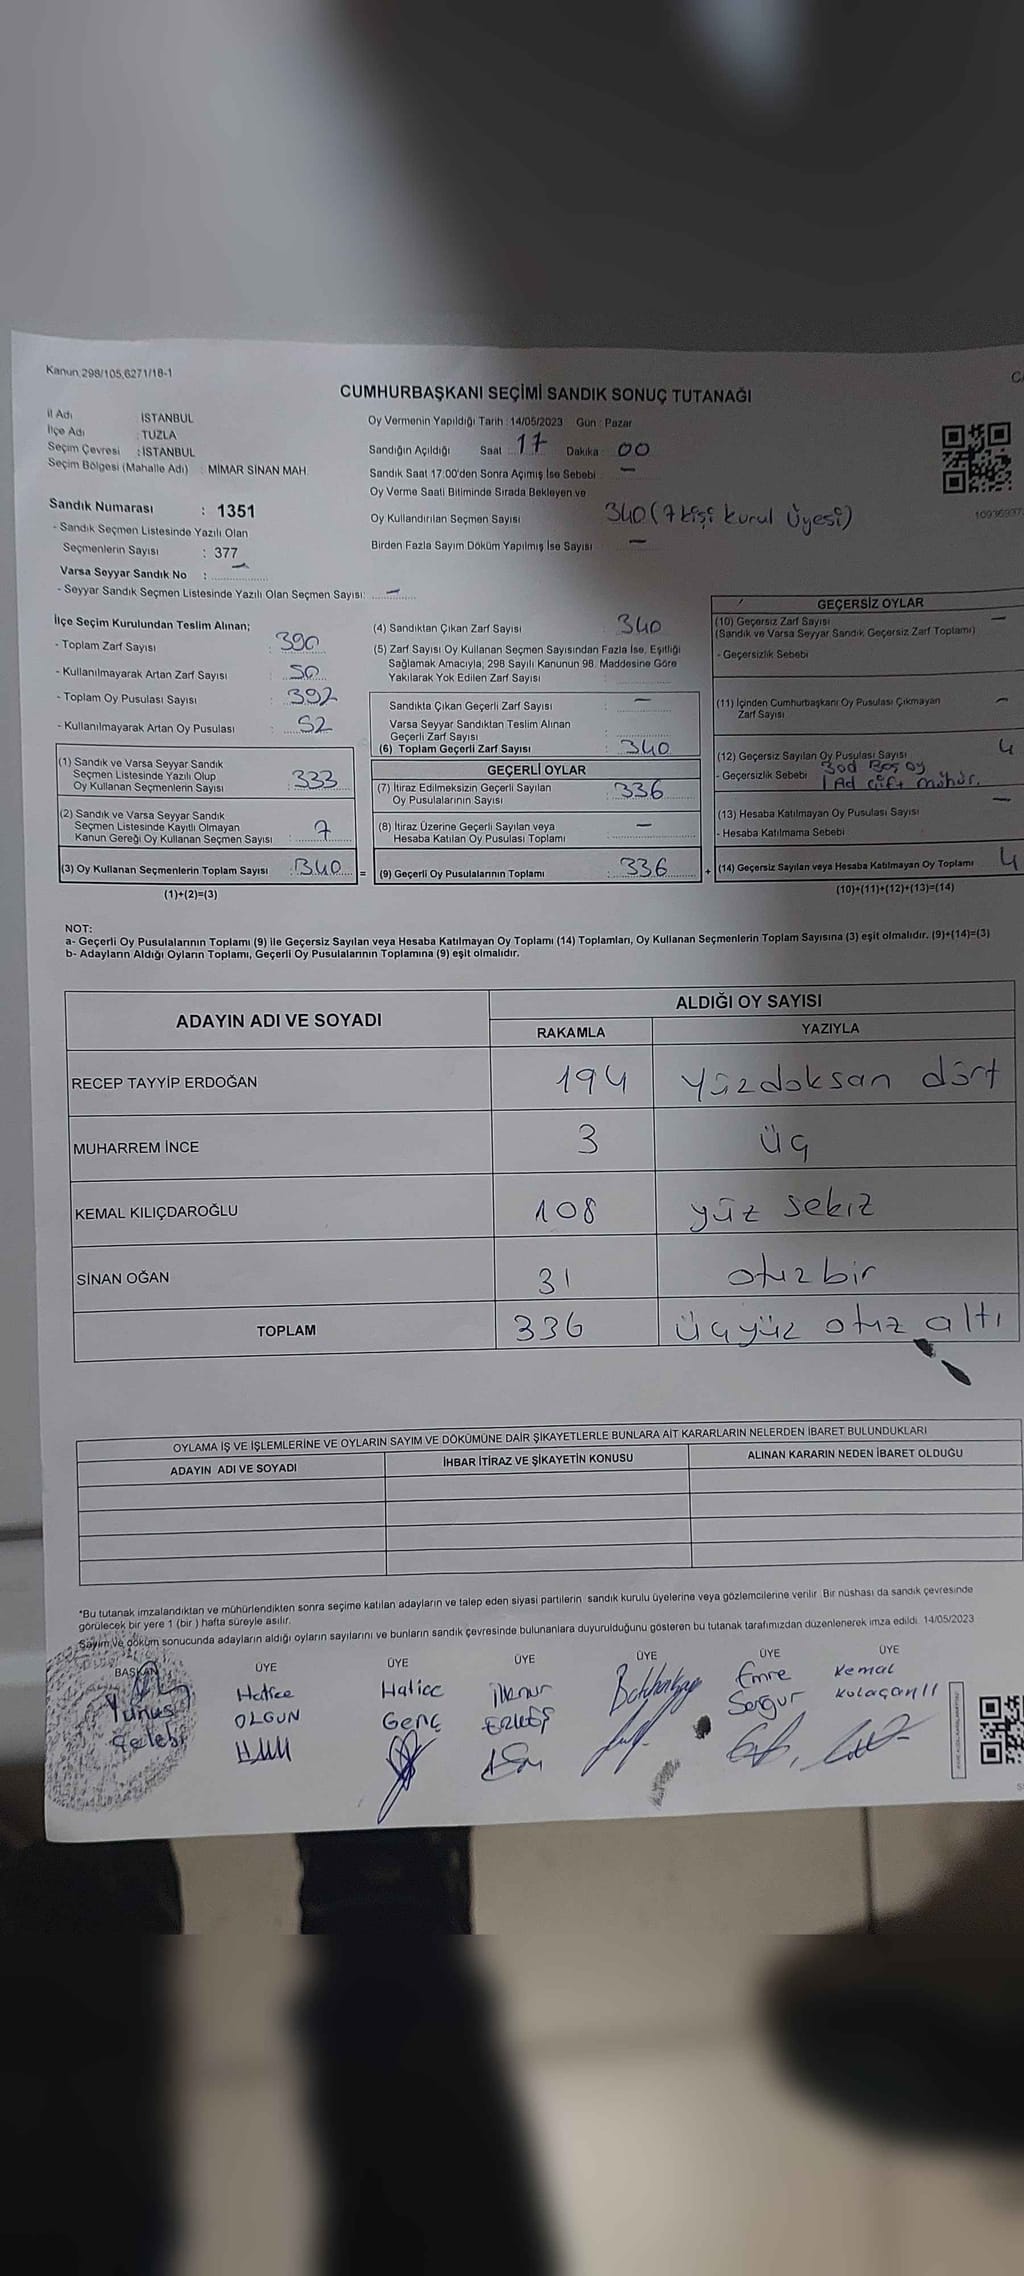 Kanun, 298/105,6271/18-1
CUMHURBAŞKANI SEÇİMİ SANDIK SONUÇ TUTANAĞI
İl Adı : İSTANBUL
İlçe Adı : TUZLA
Seçim Çevresi : İSTANBUL
Seçim Bölgesi (Mahalle Adı) : MİMAR SİNAN MAH.
Oy Vermenin Yapıldığı Tarih : 14/05/2023 Gün : Pazar
Sandığın Açıldığı Saat : 17 Dakika : 00
Sandık Saat 17:00'den Sonra Açımış İse Sebebi : —
Oy Verme Saati Bitiminde Sırada Bekleyen ve
Oy Kullandırılan Seçmen Sayısı 340 (7 kişi kurul üyesi)
Birden Fazla Sayım Döküm Yapılmış İse Sayısı : —
Sandık Numarası : 1351
- Sandık Seçmen Listesinde Yazılı Olan
Seçmenlerin Sayısı : 377
Varsa Seyyar Sandık No : —
- Seyyar Sandık Seçmen Listesinde Yazılı Olan Seçmen Sayısı: —
İlçe Seçim Kurulundan Teslim Alınan;
- Toplam Zarf Sayısı : 390
- Kullanılmayarak Artan Zarf Sayısı : 50
- Toplam Oy Pusulası Sayısı : 392
- Kullanılmayarak Artan Oy Pusulası : 52
(1) Sandık ve Varsa Seyyar Sandık
Seçmen Listesinde Yazılı Olup
Oy Kullanan Seçmenlerin Sayısı : 333
(2) Sandık ve Varsa Seyyar Sandık
Seçmen Listesinde Kayıtlı Olmayan
Kanun Gereği Oy Kullanan Seçmen Sayısı : 7
(3) Oy Kullanan Seçmenlerin Toplam Sayısı : 340 =
(1)+(2)=(3)
(4) Sandıktan Çıkan Zarf Sayısı : 340
(5) Zarf Sayısı Oy Kullanan Seçmen Sayısından Fazla İse, Eşitliği
Sağlamak Amacıyla; 298 Sayılı Kanunun 98. Maddesine Göre
Yakılarak Yok Edilen Zarf Sayısı :
Sandıkta Çıkan Geçerli Zarf Sayısı : —
Varsa Seyyar Sandıktan Teslim Alınan
Geçerli Zarf Sayısı :
(6) Toplam Geçerli Zarf Sayısı : 340
GEÇERLİ OYLAR
(7) İtiraz Edilmeksizin Geçerli Sayılan
Oy Pusulalarının Sayısı : 336
(8) İtiraz Üzerine Geçerli Sayılan veya
Hesaba Katılan Oy Pusulası Toplamı : —
(9) Geçerli Oy Pusulalarının Toplamı : 336 +
GEÇERSİZ OYLAR
(10) Geçersiz Zarf Sayısı —
(Sandık ve Varsa Seyyar Sandık Geçersiz Zarf Toplamı)
- Geçersizlik Sebebi
(11) İçinden Cumhurbaşkanı Oy Pusulası Çıkmayan
Zarf Sayısı —
(12) Geçersiz Sayılan Oy Pusulası Sayısı 4
- Geçersizlik Sebebi 3 ad Boş oy
1 Ad çift mühür.
(13) Hesaba Katılmayan Oy Pusulası Sayısı —
- Hesaba Katılmama Sebebi
(14) Geçersiz Sayılan veya Hesaba Katılmayan Oy Toplamı 4
(10)+(11)+(12)+(13)=(14)
NOT:
a- Geçerli Oy Pusulalarının Toplamı (9) ile Geçersiz Sayılan veya Hesaba Katılmayan Oy Toplamı (14) Toplamları, Oy Kullanan Seçmenlerin Toplam Sayısına (3) eşit olmalıdır. (9)+(14)=(3)
b- Adayların Aldığı Oyların Toplamı, Geçerli Oy Pusulalarının Toplamına (9) eşit olmalıdır.
ADAYIN ADI VE SOYADI ALDIĞI OY SAYISI
RAKAMLA YAZIYLA
RECEP TAYYİP ERDOĞAN 194 Yüzdoksan dört
MUHARREM İNCE 3 üç
KEMAL KILIÇDAROĞLU 108 yüz sekiz
SİNAN OĞAN 31 otuzbir
TOPLAM 336 üçyüz otuz altı
OYLAMA İŞ VE İŞLEMLERİNE VE OYLARIN SAYIM VE DÖKÜMÜNE DAİR ŞİKAYETLERLE BUNLARA AİT KARARLARIN NELERDEN İBARET BULUNDUKLARI
ADAYIN ADI VE SOYADI İHBAR İTİRAZ VE ŞİKAYETİN KONUSU ALINAN KARARIN NEDEN İBARET OLDUĞU
*Bu tutanak imzalandıktan ve mühürlendikten sonra seçime katılan adayların ve talep eden siyasi partilerin sandık kurulu üyelerine veya gözlemcilerine verilir. Bir nüshası da sandık çevresinde
görülecek bir yere 1 (bir) hafta süreyle asılır.
Sayım ve döküm sonucunda adayların aldığı oyların sayılarını ve bunların sandık çevresinde bulunanlara duyurulduğunu gösteren bu tutanak tarafımızdan düzenlenerek imza edildi. 14/05/2023
BAŞKAN ÜYE ÜYE ÜYE ÜYE ÜYE ÜYE
Yunus Hatice Hatice İlknur Emre Kemal
Çelebi OLGUN Genç